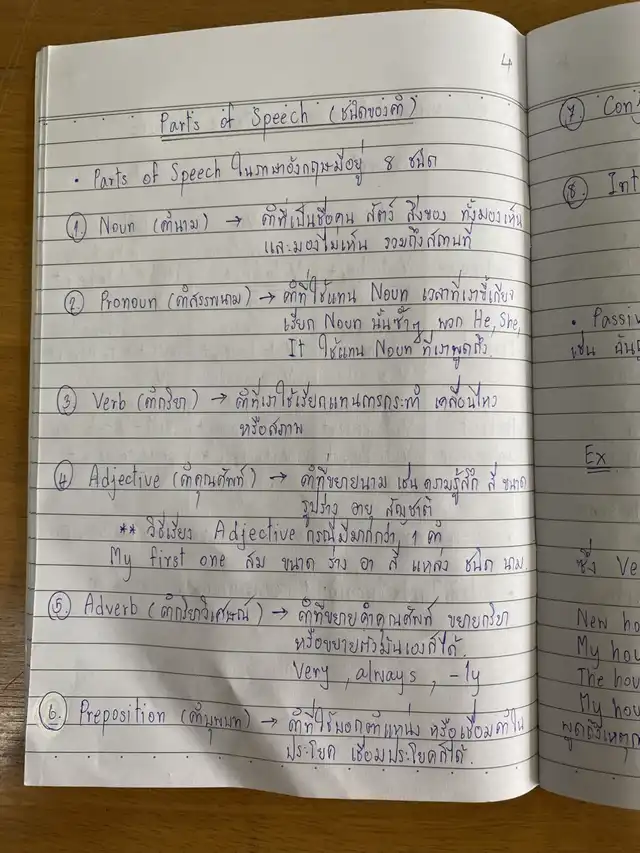 4
Parts of Speech (ชนิดของคำ)
• Parts of Speech ในภาษาอังกฤษมีอยู่ 8 ชนิด
① Noun (คำนาม) → คำที่เป็นชื่อคน สัตว์ สิ่งของ ทั้งมองเห็น
และมองไม่เห็น รวมถึงสถานที่
② Pronoun (คำสรรพนาม) → คำที่ใช้แทน Noun เวลาที่เราขี้เกียจ
เรียก Noun นั้นซ้ำๆ พวก He, She,
It ใช้แทน Noun ที่เราพูดถึง
③ Verb (คำกริยา) → คำที่เราใช้เรียกแทนการกระทำ เคลื่อนไหว
หรือสภาพ
④ Adjective (คำคุณศัพท์) → คำที่ขยายนาม เช่น ความรู้สึก สี ขนาด
รูปร่าง อายุ สัญชาติ
** วิธีเรียง Adjective กรณีมีมากกว่า 1 คำ
My first one สม ขนาด ร่าง อา สี แหล่ง ชนิด นาม
⑤ Adverb (คำกริยาวิเศษณ์) → คำที่ขยายคำคุณศัพท์ ขยายกริยา
หรือขยายตัวมันเองก็ได้.
Very, always, -ly
⑥ Preposition (คำบุพบท) → คำที่ใช้บอกตำแหน่ง หรือเชื่อมคำใน
ประโยค เชื่อมประโยคก็ได้.
⑦ Con
⑧ Int
• Passiv
เช่น
Ex
ซึ่ง Ve
New ho
My hou
The hou
My hou